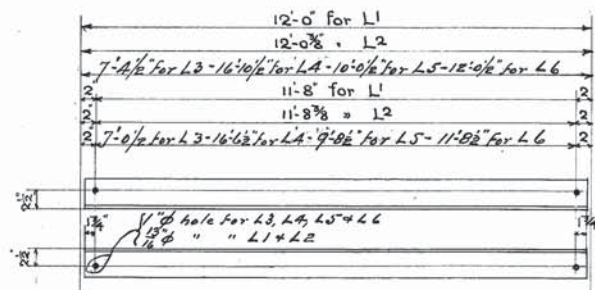 12'-0" for L1
12'-0⅜" " L2
7'-4½" for L3-16'-10½" for L4-10'-0½" for L5-12'-0½" for L6
2" 11'-8" for L1 2"
2" 11'-8⅜ » L2 2"
2" 7'-0½ for L3-16'-6½" for L4-9'-8½" for L5-11'-8½" for L6 2"
2½"
1¾" 1"φ hole for L3, L4, L5 & L6 1¾"
13/16"φ " " L1 & L2
2½"